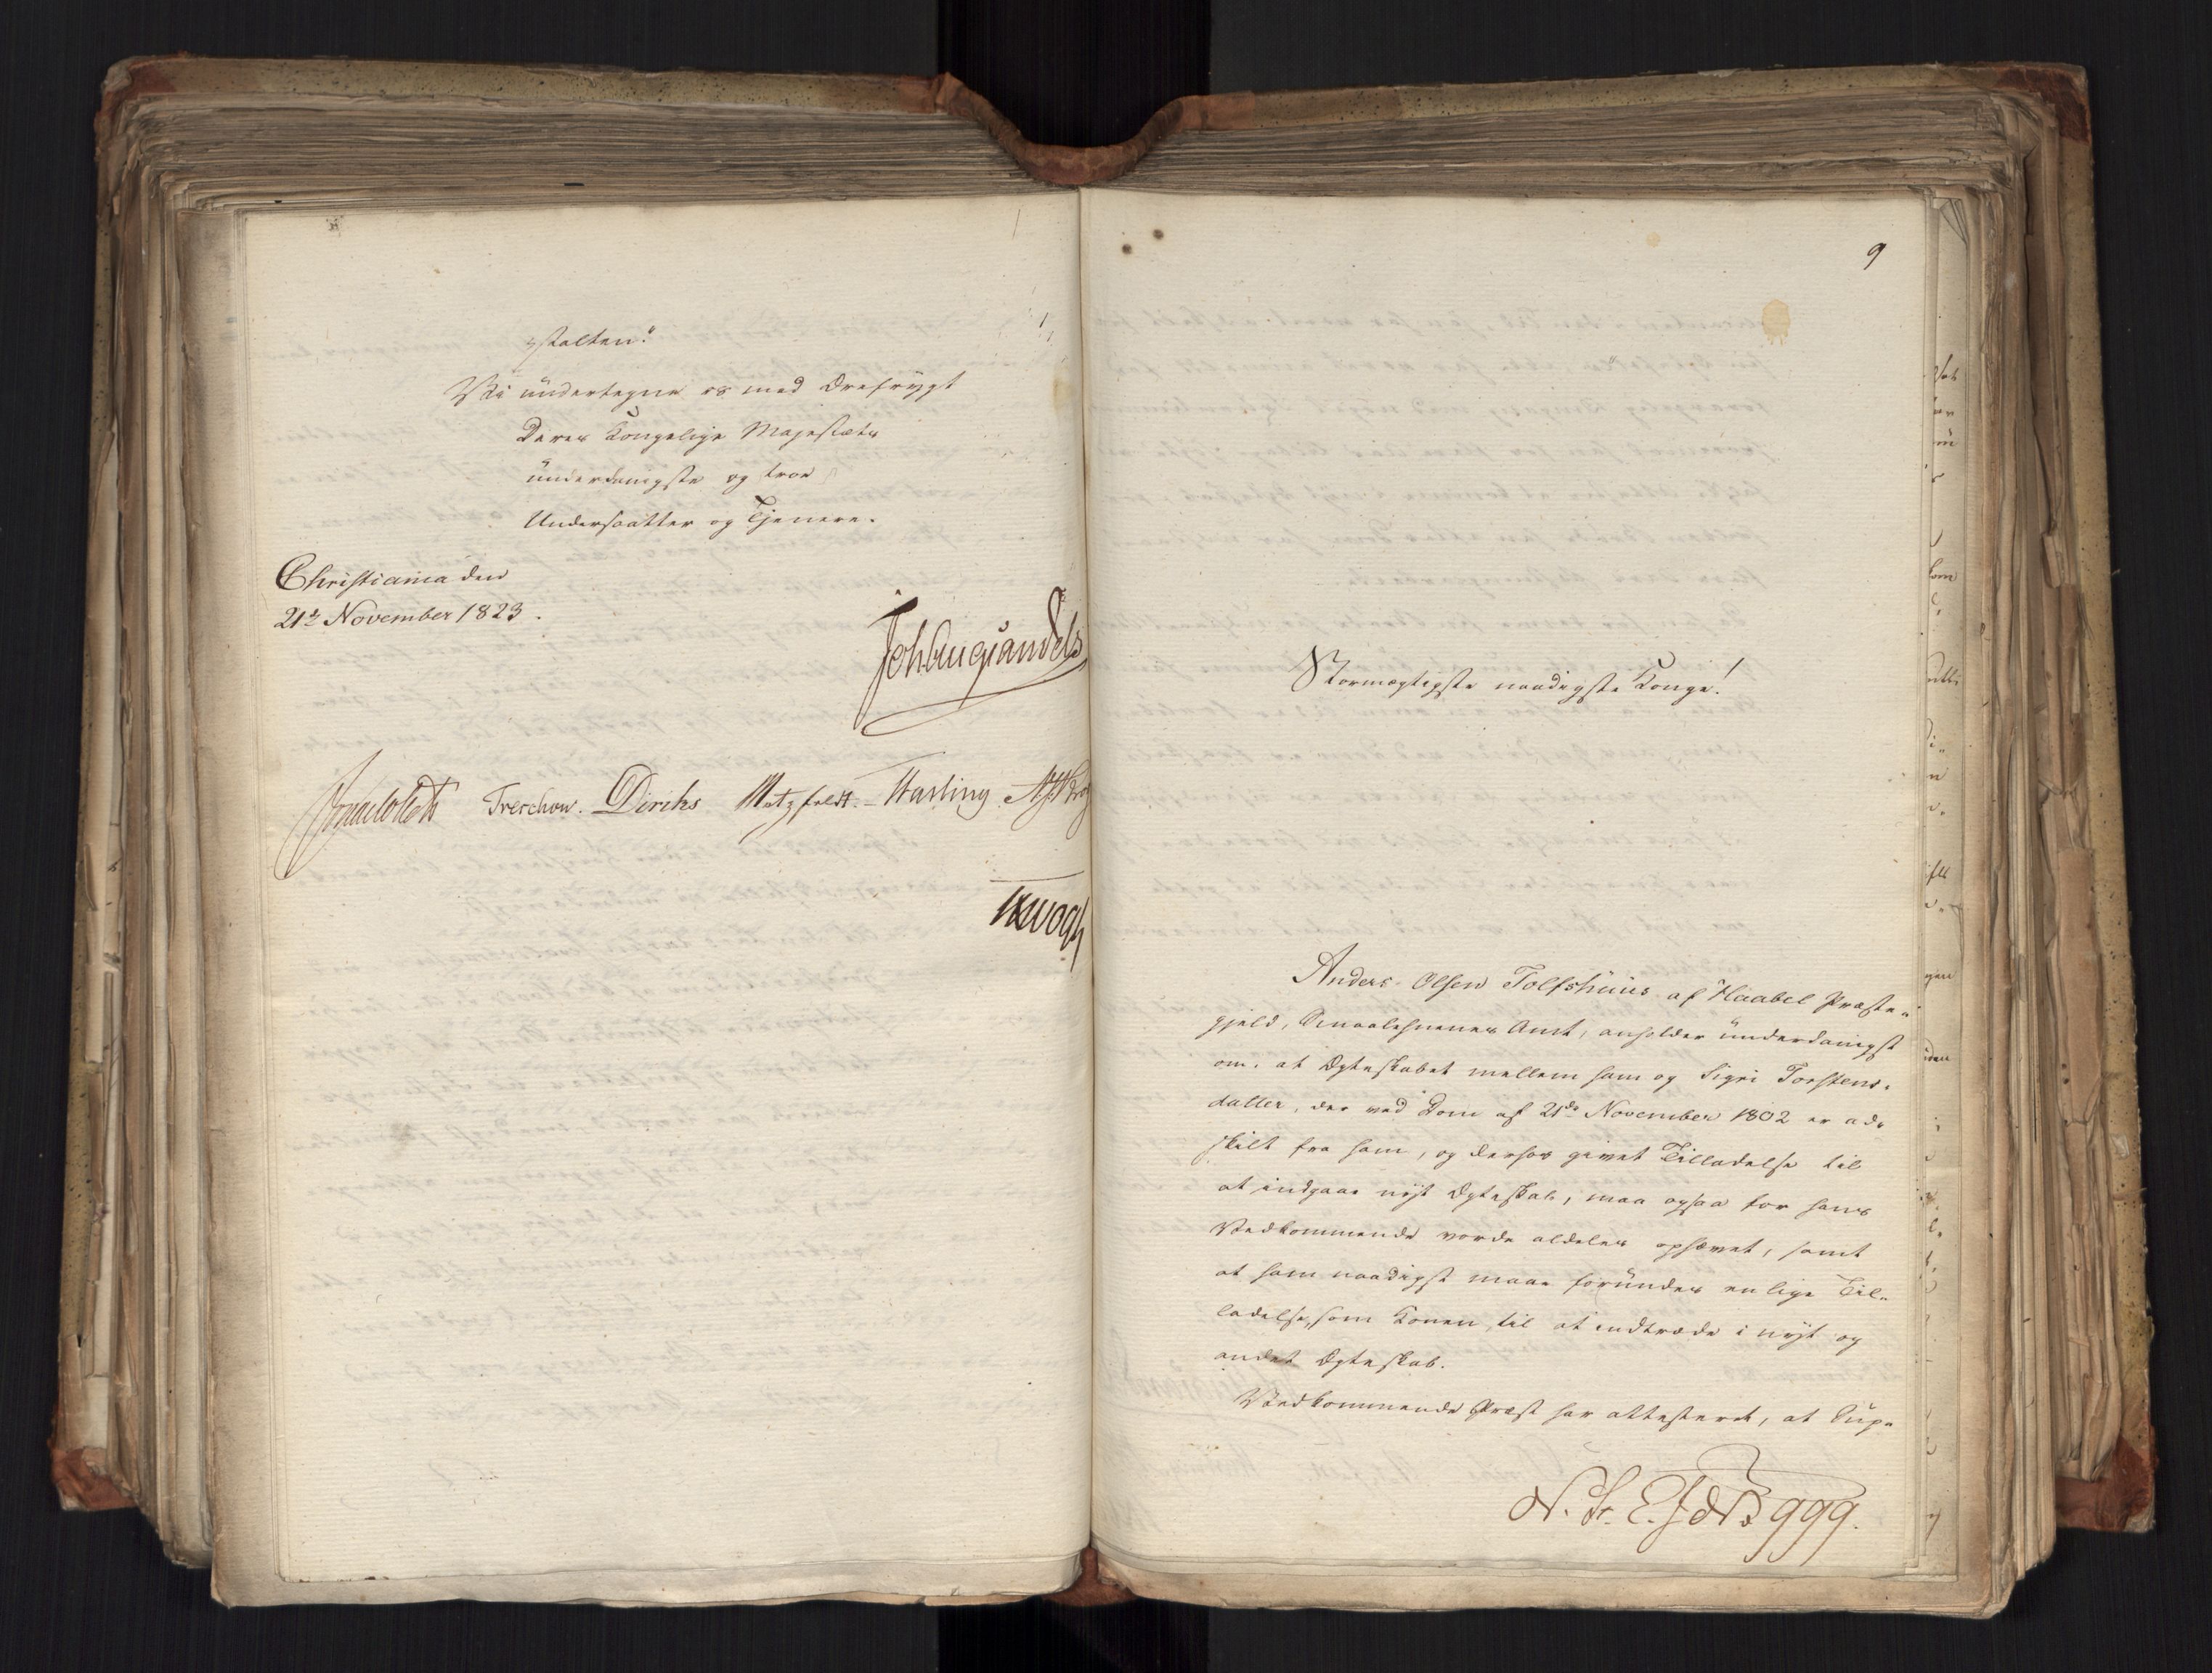 stalten."
Vi undertegne os med Ærefrygt
Deres Kongelige Majestæts
underdanigste og troe
Undersaatter og Tjenere.
Christiania den
21de November 1823.
Joh Aug Sandels
Treschow. Diriks Motzfeldt. Hasting
9
Stormægtigste naadigste Konge!
Anders Olsen Tolfshuus af Haabel Præste-
gjeld, Smaalehnenes Amt, anholder underdanigst
om, at Ægteskabet mellem ham og Sigri Torstens-
datter, der ved Dom af 21de November 1802 er ad-
skilt fra ham, og derhos givet Tilladelse til
at indgaae nyt Ægteskab, maa ogsaa for hans
Vedkommende vorde aldeles ophævet, samt
at ham naadigst maae forundes en lige Til-
ladelse, som Konen, til at indtræde i nyt og
andet Ægteskab.
Vedkommende Præst har attesteret, at Sup-
N. St. E. J d No 999.